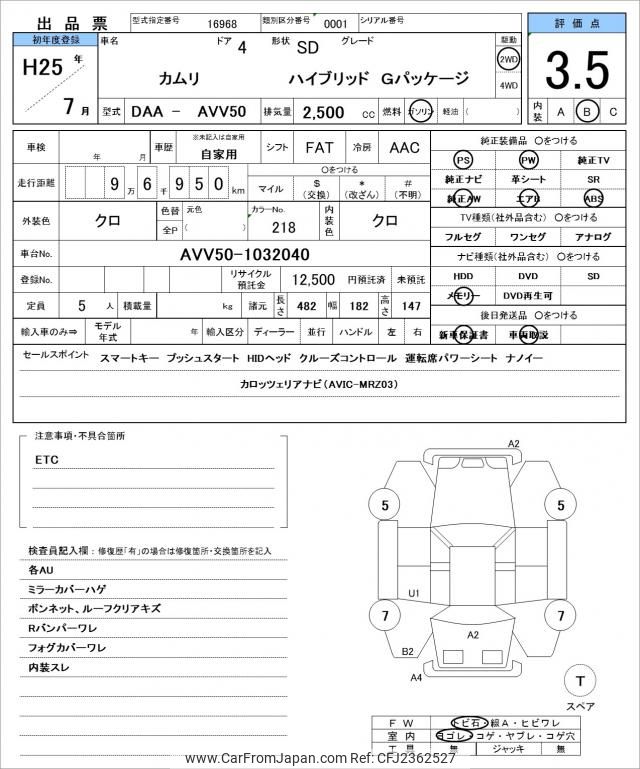 出品票
型式指定番号 16968 類別区分番号 0001 シリアル番号
評価点
3.5
内装 A B C
初年度登録
H25 年
7 月
車名 ドア 4 形状 SD グレード
カムリ ハイブリッド Gパッケージ
駆動
2WD
4WD
型式 DAA － AVV50 排気量 2,500 cc 燃料 ガソリン ・ 軽油 ( )
車検 年 月 車歴 ※未記入は自家用 自家用 シフト FAT 冷房 AAC
走行距離 9 万 6 千 9 5 0 km
○をつける
マイル $ (交換) * (改ざん) # (不明)
外装色 クロ 色替 全P 元色 ( ) カラーNo. 218 内装色 クロ
車台No. AVV50-1032040
登録No. リサイクル預託金 12,500 円預託済 未預託
定員 5 人 積載量 kg 諸元 長さ 482 幅 182 高さ 147
輸入車のみ⇒ モデル年式 年 輸入区分 ディーラー 並行 ハンドル 左 右
純正装備品 ○をつける
PS PW 純正TV
純正ナビ 革シート SR
純正AW エアB ABS
TV種類(社外品含む) ○をつける
フルセグ ワンセグ アナログ
ナビ種類(社外品含む) ○をつける
HDD DVD SD
メモリー DVD再生可
後日発送品 ○をつける
新車保証書 車両取説
セールスポイント スマートキー プッシュスタート HIDヘッド クルーズコントロール 運転席パワーシート ナノイー
カロッツェリアナビ(AVIC-MRZ03)
注意事項・不具合箇所
ETC
検査員記入欄：修復歴「有」の場合は修復箇所・交換箇所を記入
各AU
ミラーカバーハゲ
ボンネット、ルーフクリアキズ
Rバンパーワレ
フォグカバーワレ
内装スレ
A2
5 5
U1
7 7
A2
B2
A4
T
スペア
FW トビ石・線A・ヒビワレ
室内 ヨゴレ・コゲ・ヤブレ・コゲ穴
工具 無 ジャッキ 無
www.CarFromJapan.com Ref: CFJ2362527